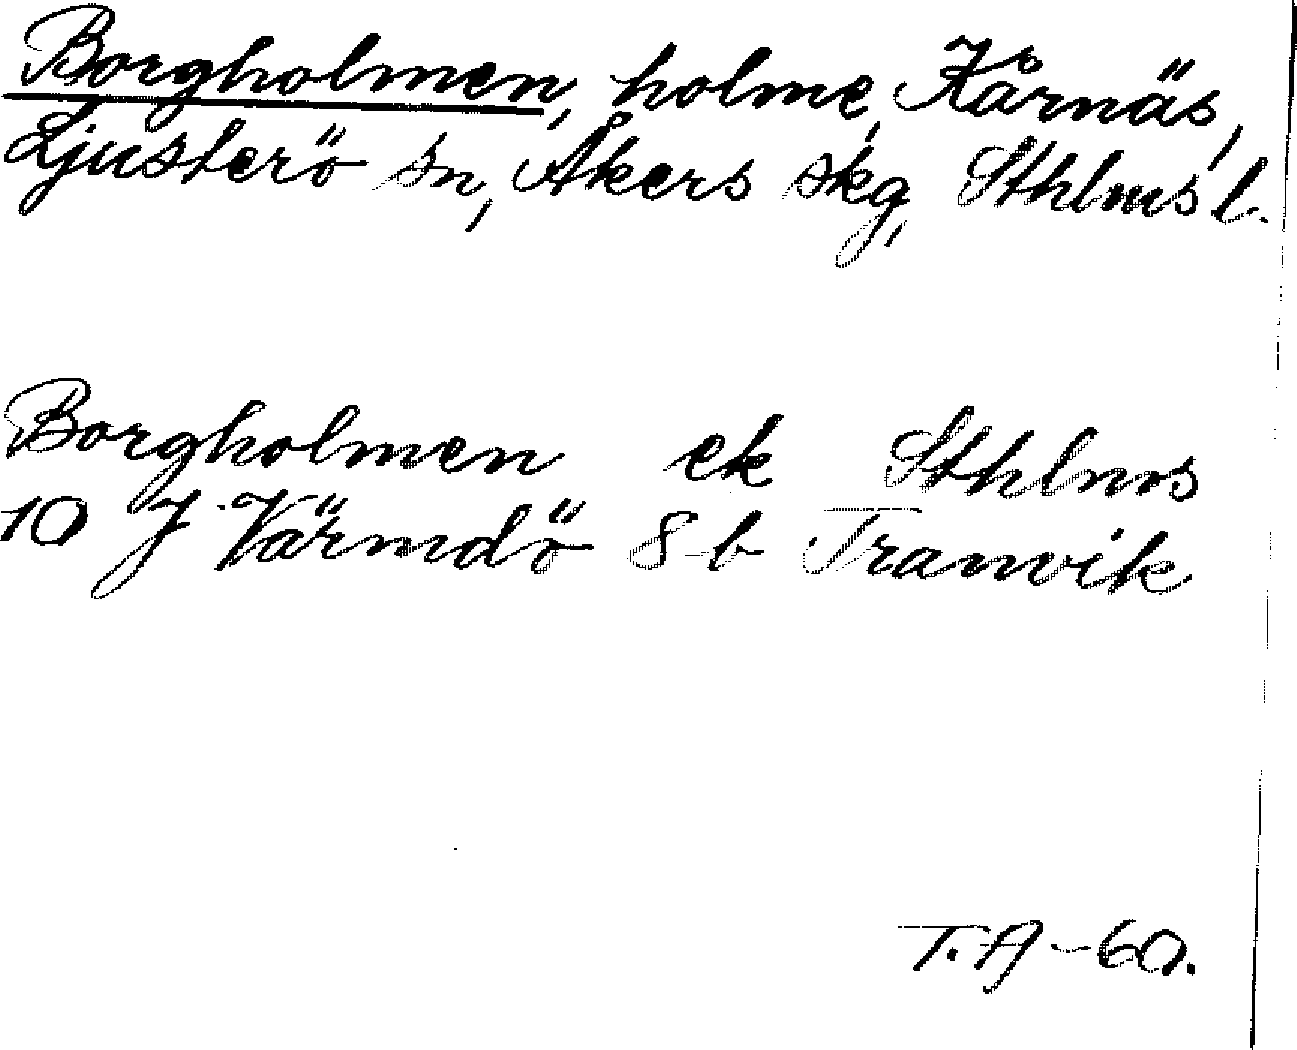 Borgholmen, holme, Kårnäs,
Ljusterö sn, Åkers skg, Sthlms l.
Borgholmen ek Sthlms
10 J Värmdö 8 b Tranvik
T.A -60.